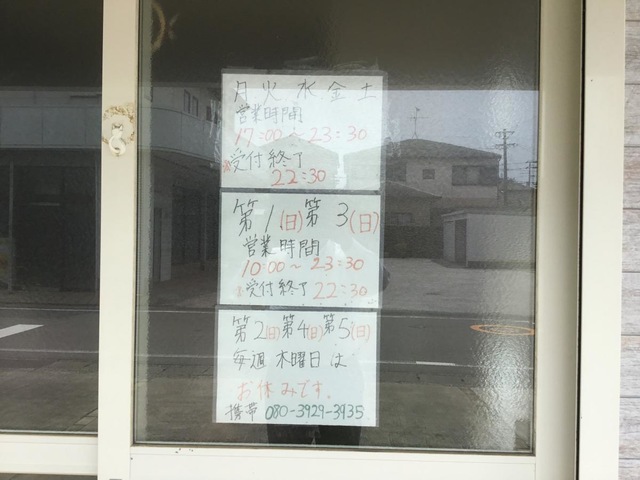 月 火 水 金 土
営業時間
17:00~23:30
※受付終了
22:30
第1(日)第3(日)
営業時間
10:00~23:30
※受付終了 22:30
第2(日)第4(日)第5(日)
毎週 木曜日は
お休みです。
携帯 080-3929-3935